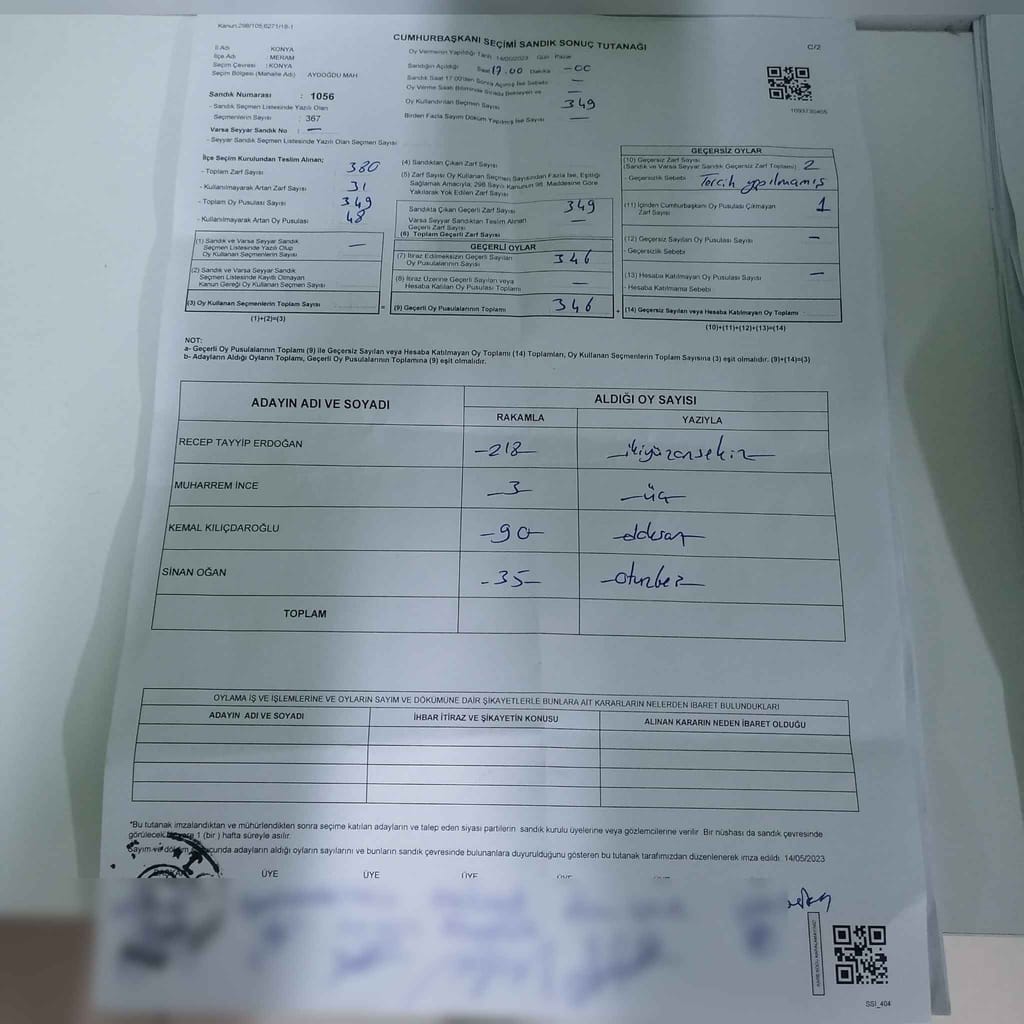 Kanun:298/105,6271/18-1
CUMHURBAŞKANI SEÇİMİ SANDIK SONUÇ TUTANAĞI
C/2
İl Adı : KONYA
İlçe Adı : MERAM
Seçim Çevresi : KONYA
Seçim Bölgesi (Mahalle Adı) AYDOĞDU MAH
Oy Vermenin Yapıldığı Tarih 14/05/2023 Gün : Pazar
Sandığın Açıldığı Saat 17.00 Dakika -00
Sandık Saat 17:00'den Sonra Açılmış İse Sebebi —
Oy Verme Saati Bitiminde Sırada Bekleyen ve
Oy Kullandırılan Seçmen Sayısı 349
Birden Fazla Sayım Döküm Yapılmış İse Sayısı —
Sandık Numarası : 1056
- Sandık Seçmen Listesinde Yazılı Olan
Seçmenlerin Sayısı : 367
Varsa Seyyar Sandık No : —
- Seyyar Sandık Seçmen Listesinde Yazılı Olan Seçmen Sayısı
İlçe Seçim Kurulundan Teslim Alınan;
- Toplam Zarf Sayısı 380
- Kullanılmayarak Artan Zarf Sayısı 31
- Toplam Oy Pusulası Sayısı 349
- Kullanılmayarak Artan Oy Pusulası 48
(1) Sandık ve Varsa Seyyar Sandık
Seçmen Listesinde Yazılı Olup
Oy Kullanan Seçmenlerin Sayısı —
(2) Sandık ve Varsa Seyyar Sandık
Seçmen Listesinde Kayıtlı Olmayan
Kanun Gereği Oy Kullanan Seçmen Sayısı
(3) Oy Kullanan Seçmenlerin Toplam Sayısı
(1)+(2)=(3)
(4) Sandıktan Çıkan Zarf Sayısı
(5) Zarf Sayısı Oy Kullanan Seçmen Sayısından Fazla İse, Eşitliği
Sağlamak Amacıyla, 298 Sayılı Kanunun 98. Maddesine Göre
Yakılarak Yok Edilen Zarf Sayısı
Sandıkta Çıkan Geçerli Zarf Sayısı 349
Varsa Seyyar Sandıktan Teslim Alınan
Geçerli Zarf Sayısı —
(6) Toplam Geçerli Zarf Sayısı
GEÇERLİ OYLAR
(7) İtiraz Edilmeksizin Geçerli Sayılan
Oy Pusulalarının Sayısı 346
(8) İtiraz Üzerine Geçerli Sayılan veya
Hesaba Katılan Oy Pusulası Toplamı —
(9) Geçerli Oy Pusulalarının Toplamı 346
GEÇERSİZ OYLAR
(10) Geçersiz Zarf Sayısı
(Sandık ve Varsa Seyyar Sandık Geçersiz Zarf Toplamı) 2
- Geçersizlik Sebebi Tercih yapılmamış
(11) İçinden Cumhurbaşkanı Oy Pusulası Çıkmayan
Zarf Sayısı 1
(12) Geçersiz Sayılan Oy Pusulası Sayısı —
- Geçersizlik Sebebi
(13) Hesaba Katılmayan Oy Pusulası Sayısı —
- Hesaba Katılmama Sebebi
(14) Geçersiz Sayılan veya Hesaba Katılmayan Oy Toplamı
(10)+(11)+(12)+(13)=(14)
NOT:
a- Geçerli Oy Pusulalarının Toplamı (9) ile Geçersiz Sayılan veya Hesaba Katılmayan Oy Toplamı (14) Toplamları, Oy Kullanan Seçmenlerin Toplam Sayısına (3) eşit olmalıdır. (9)+(14)=(3)
b- Adayların Aldığı Oyların Toplamı, Geçerli Oy Pusulalarının Toplamına (9) eşit olmalıdır.
ADAYIN ADI VE SOYADI
ALDIĞI OY SAYISI
RAKAMLA YAZIYLA
RECEP TAYYİP ERDOĞAN -218- -ikiyüzonsekiz-
MUHARREM İNCE -3- -üç-
KEMAL KILIÇDAROĞLU -90- -doksan-
SİNAN OĞAN -35- -otuzbeş-
TOPLAM
OYLAMA İŞ VE İŞLEMLERİNE VE OYLARIN SAYIM VE DÖKÜMÜNE DAİR ŞİKAYETLERLE BUNLARA AİT KARARLARIN NELERDEN İBARET BULUNDUKLARI
ADAYIN ADI VE SOYADI İHBAR İTİRAZ VE ŞİKAYETİN KONUSU ALINAN KARARIN NEDEN İBARET OLDUĞU
*Bu tutanak imzalandıktan ve mühürlendikten sonra seçime katılan adayların ve talep eden siyasi partilerin sandık kurulu üyelerine veya gözlemcilerine verilir. Bir nüshası da sandık çevresinde
görülecek bir yere 1 (bir ) hafta süreyle asılır.
Sayım ve döküm sonucunda adayların aldığı oyların sayılarını ve bunların sandık çevresinde bulunanlara duyurulduğunu gösteren bu tutanak tarafımızdan düzenlenerek imza edildi. 14/05/2023
BAŞKAN ÜYE ÜYE ÜYE
SSI_404